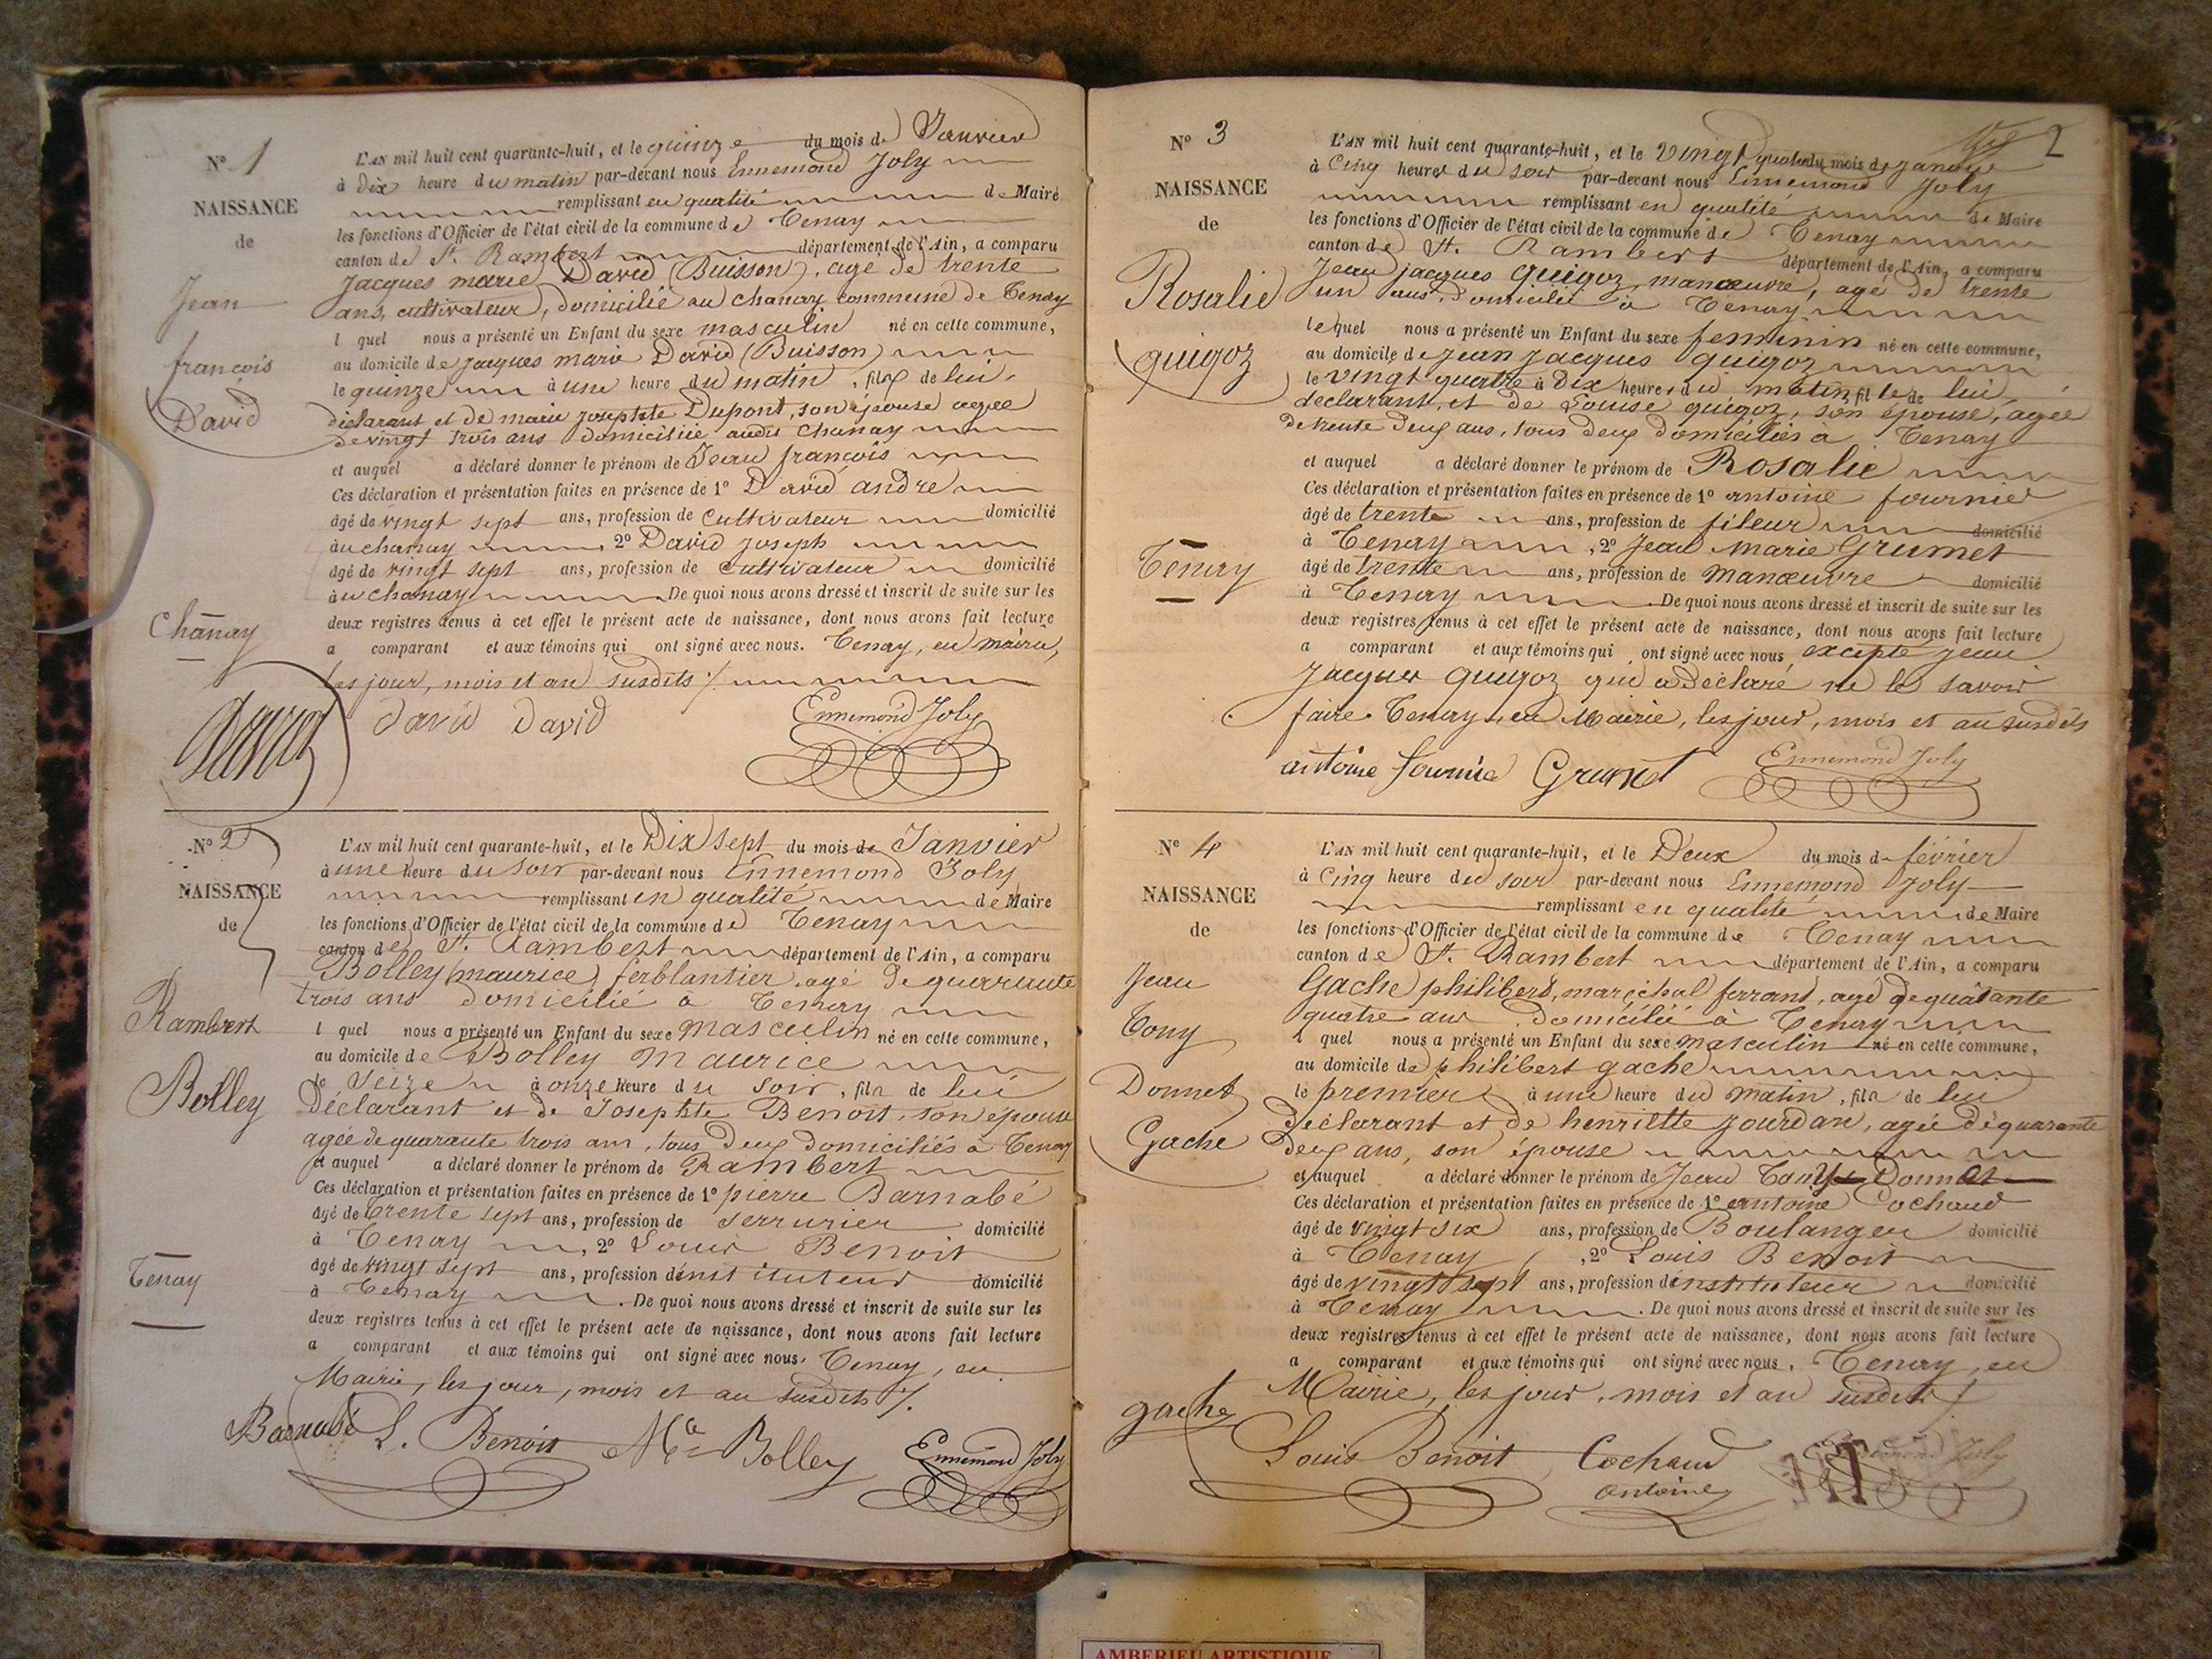 N° 1
NAISSANCE
de
Jean
françois
David
Chanay
L'AN mil huit cent quarante-huit, et le quinze du mois de Janvier
à dix heure du matin par-devant nous Ennemond Joly
remplissant en qualité de Maire
les fonctions d'Officier de l'état civil de la commune de Tenay
canton de St. Rambert département de l'Ain, a comparu
Jacques marie David (Buisson), agé de trente
ans, cultivateur, domicilié au chanay commune de Tenay
l quel nous a présenté un Enfant du sexe masculin né en cette commune,
au domicile de jacques marie David (Buisson)
le quinze à une heure du matin, fils de lui,
déclarant et de marie josephte Dupont, son épouse agée
de vingt trois ans domiciliée audit chanay
et auquel a déclaré donner le prénom de Jean françois
Ces déclaration et présentation faites en présence de 1° David andre
âgé de vingt sept ans, profession de cultivateur domicilié
au chanay 2° David joseph
âgé de vingt sept ans, profession de cultivateur domicilié
au chanay De quoi nous avons dressé et inscrit de suite sur les
deux registres tenus à cet effet le présent acte de naissance, dont nous avons fait lecture
a comparant et aux témoins qui ont signé avec nous. Tenay, en mairie,
les jour, mois et an susdits ./.
David David Ennemond Joly
N° 2
NAISSANCE
de
Rambert
Bolley
Tenay
L'AN mil huit cent quarante-huit, et le Dix sept du mois de Janvier
à une heure du soir par-devant nous Ennemond Joly
remplissant en qualité de Maire
les fonctions d'Officier de l'état civil de la commune de Tenay
canton de St. Rambert département de l'Ain, a comparu
Bolley (maurice) ferblantier, agé de quarante
trois ans domicilié à Tenay
l quel nous a présenté un Enfant du sexe masculin né en cette commune,
au domicile de Bolley maurice
le seize à onze heure du soir, fils de lui
Déclarant et de Josephte Benoit, son épouse
agée de quarante trois ans, tous deux domiciliés à Tenay
et auquel a déclaré donner le prénom de Rambert
Ces déclaration et présentation faites en présence de 1° pierre Barnabé
âgé de trente sept ans, profession de serrurier domicilié
à Tenay, 2° Louis Benoit
âgé de vingt sept ans, profession d'instituteur domicilié
à Tenay. De quoi nous avons dressé et inscrit de suite sur les
deux registres tenus à cet effet le présent acte de naissance, dont nous avons fait lecture
a comparant et aux témoins qui ont signé avec nous. Tenay, en
Mairie, les jour, mois et an susdits ./.
Barnabé L. Benoit Mce Bolley Ennemond Joly
2
N° 3
NAISSANCE
de
Rosalie
quigoz
Tenay
L'AN mil huit cent quarante-huit, et le vingt quatre du mois de janvier
à cinq heures du soir par-devant nous Ennemond Joly
remplissant en qualité de Maire
les fonctions d'Officier de l'état civil de la commune de Tenay
canton de St. Rambert département de l'Ain, a comparu
Jean jacques quigoz, manœuvre, agé de trente
un ans, domicilié à Tenay
lequel nous a présenté un Enfant du sexe feminin né en cette commune,
au domicile de jean jacques quigoz
le vingt quatre à dix heures du matin, fille de lui,
déclarant, et de Louise quigoz, son épouse, agée
de trente deux ans, tous deux domiciliés à Tenay
et auquel a déclaré donner le prénom de Rosalie
Ces déclaration et présentation faites en présence de 1° antoine fournier
âgé de trente ans, profession de fileur domicilié
à Tenay, 2° Jean Marie Grumet
âgé de trente ans, profession de manœuvre domicilié
à Tenay. De quoi nous avons dressé et inscrit de suite sur les
deux registres tenus à cet effet le présent acte de naissance, dont nous avons fait lecture
a comparant et aux témoins qui ont signé avec nous, excepté jean
Jacques quigoz qui a déclaré ne le savoir
faire. Tenay, en Mairie, les jour, mois et an susdits
antoine fournie Grumet Ennemond Joly
N° 4
NAISSANCE
de
Jean
Tony
Donnet
Gache
L'AN mil huit cent quarante-huit, et le Deux du mois de février
à cinq heure du soir par-devant nous Ennemond joly
remplissant en qualité de Maire
les fonctions d'Officier de l'état civil de la commune de Tenay
canton de St. Rambert département de l'Ain, a comparu
Gache philibert, maréchal ferrant, agé de quarante
quatre ans domicilié à Tenay
l quel nous a présenté un Enfant du sexe masculin né en cette commune,
au domicile de philibert gache
le premier à une heure du matin, fils de lui
déclarant et de henriette jourdan, agée de quarante
deux ans, son épouse
et auquel a déclaré donner le prénom de Jean Tony Donnet
Ces déclaration et présentation faites en présence de 1° antoine Cochaud
âgé de vingt six ans, profession de Boulanger domicilié
à Tenay, 2° Louis Benoit
âgé de vingt sept ans, profession d'instituteur domicilié
à Tenay. De quoi nous avons dressé et inscrit de suite sur les
deux registres tenus à cet effet le présent acte de naissance, dont nous avons fait lecture
a comparant et aux témoins qui ont signé avec nous. Tenay, en
Mairie, les jour, mois et an susdits ./.
gache Louis Benoit Cochaud Ennemond Joly
antoine
AMBERIEU ARTISTIQUE